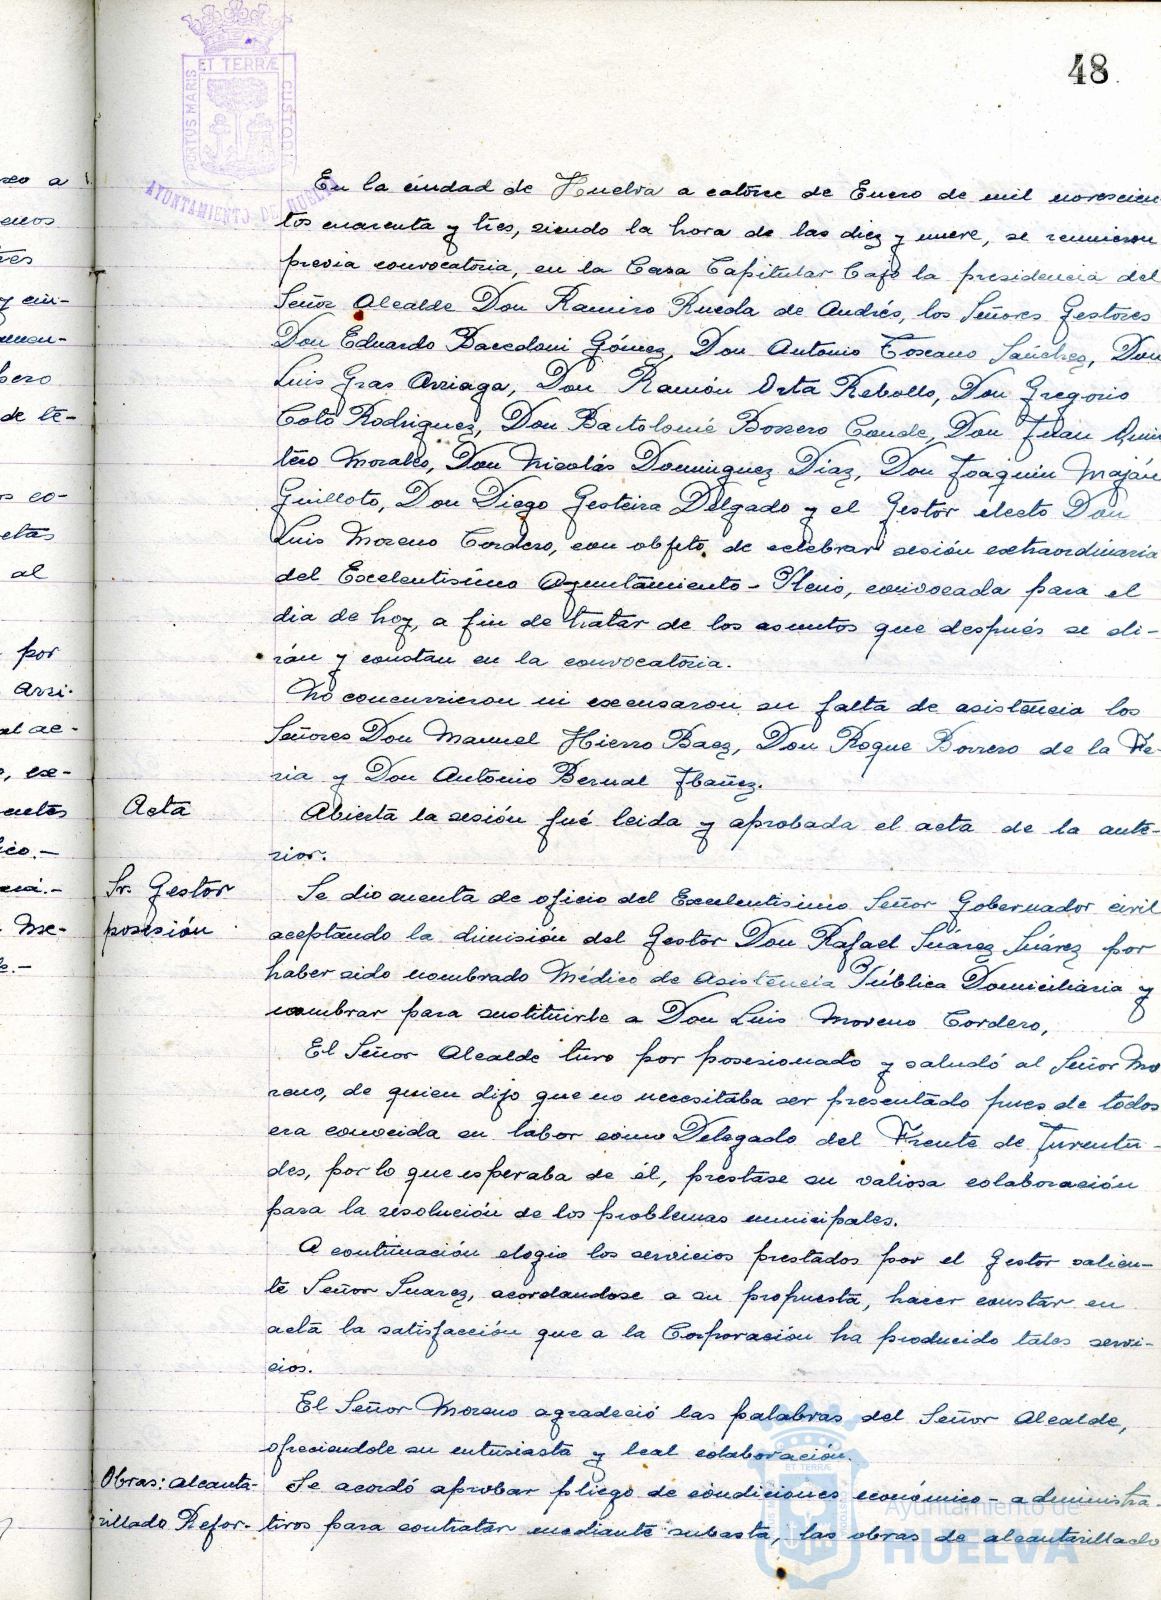 48
PORTUS MARIS ET TERRÆ CUSTODIA
AYUNTAMIENTO DE HUELVA
En la ciudad de Huelva a catorce de Enero de mil novescien
tos cuarenta y tres, siendo la hora de las diez y nueve, se reunieron
previa convocatoria, en la Casa Capitular bajo la presidencia del
Señor Alcalde Don Ramiro Rueda de Andrés, los Señores Gestores
Don Eduardo Bacedoni Gómez, Don Antonio Toscano Sánchez, Don
Luis Gras Arriaga, Don Ramón Orta Rebollo, Don Gregorio
Coto Rodriguez, Don Bartolomé Borrero Conde, Don Juan Quin
tero Morales, Don Nicolás Dominguez Diaz, Don Joaquin Maján
Guilloto, Don Diego Gesteira Delgado y el Gestor electo Don
Luis Moreno Cordero, con objeto de celebrar sesión extraordinaria
del Excelentisimo Ayuntamiento-Pleno, convocada para el
dia de hoy, a fin de tratar de los asuntos que después se di-
rán y constan en la convocatoria.
No concurrieron ni excusaron su falta de asistencia los
Señores Don Manuel Hierro Baez, Don Roque Borrero de la Fe-
ria y Don Antonio Bernal Ibañez.
Acta
Abierta la sesión fué leida y aprobada el acta de la ante-
rior.
Sr. Gestor
posesión
Se dio cuenta de oficio del Excelentisimo Señor Gobernador civil
aceptando la dimisión del Gestor Don Rafael Suárez Suárez por
haber sido nombrado Médico de Asistencia Pública Domiciliaria y
nombrar para sustituirle a Don Luis Moreno Cordero,
El Señor Alcalde tuvo por posesionado y saludó al Señor Mo
reno, de quien dijo que no necesitaba ser presentado pues de todos
era conocida su labor como Delegado del Frente de Juventu-
des, por lo que esperaba de él, prestase su valiosa colaboración
para la resolución de los problemas municipales.
A continuación elogio los servicios prestados por el Gestor salien-
te Señor Suarez, acordandose a su propuesta, hacer constar en
acta la satisfacción que a la Corporación ha producido tales servi-
cios.
El Señor Moreno agradeció las palabras del Señor Alcalde,
ofreciendole su entusiasta y leal colaboración.
Obras: alcanta-
rillado Refor-
Se acordó aprobar pliego de condiciones económico administra-
tivos para contratar mediante subasta, las obras de alcantarillado
Ayuntamiento de
HUELVA